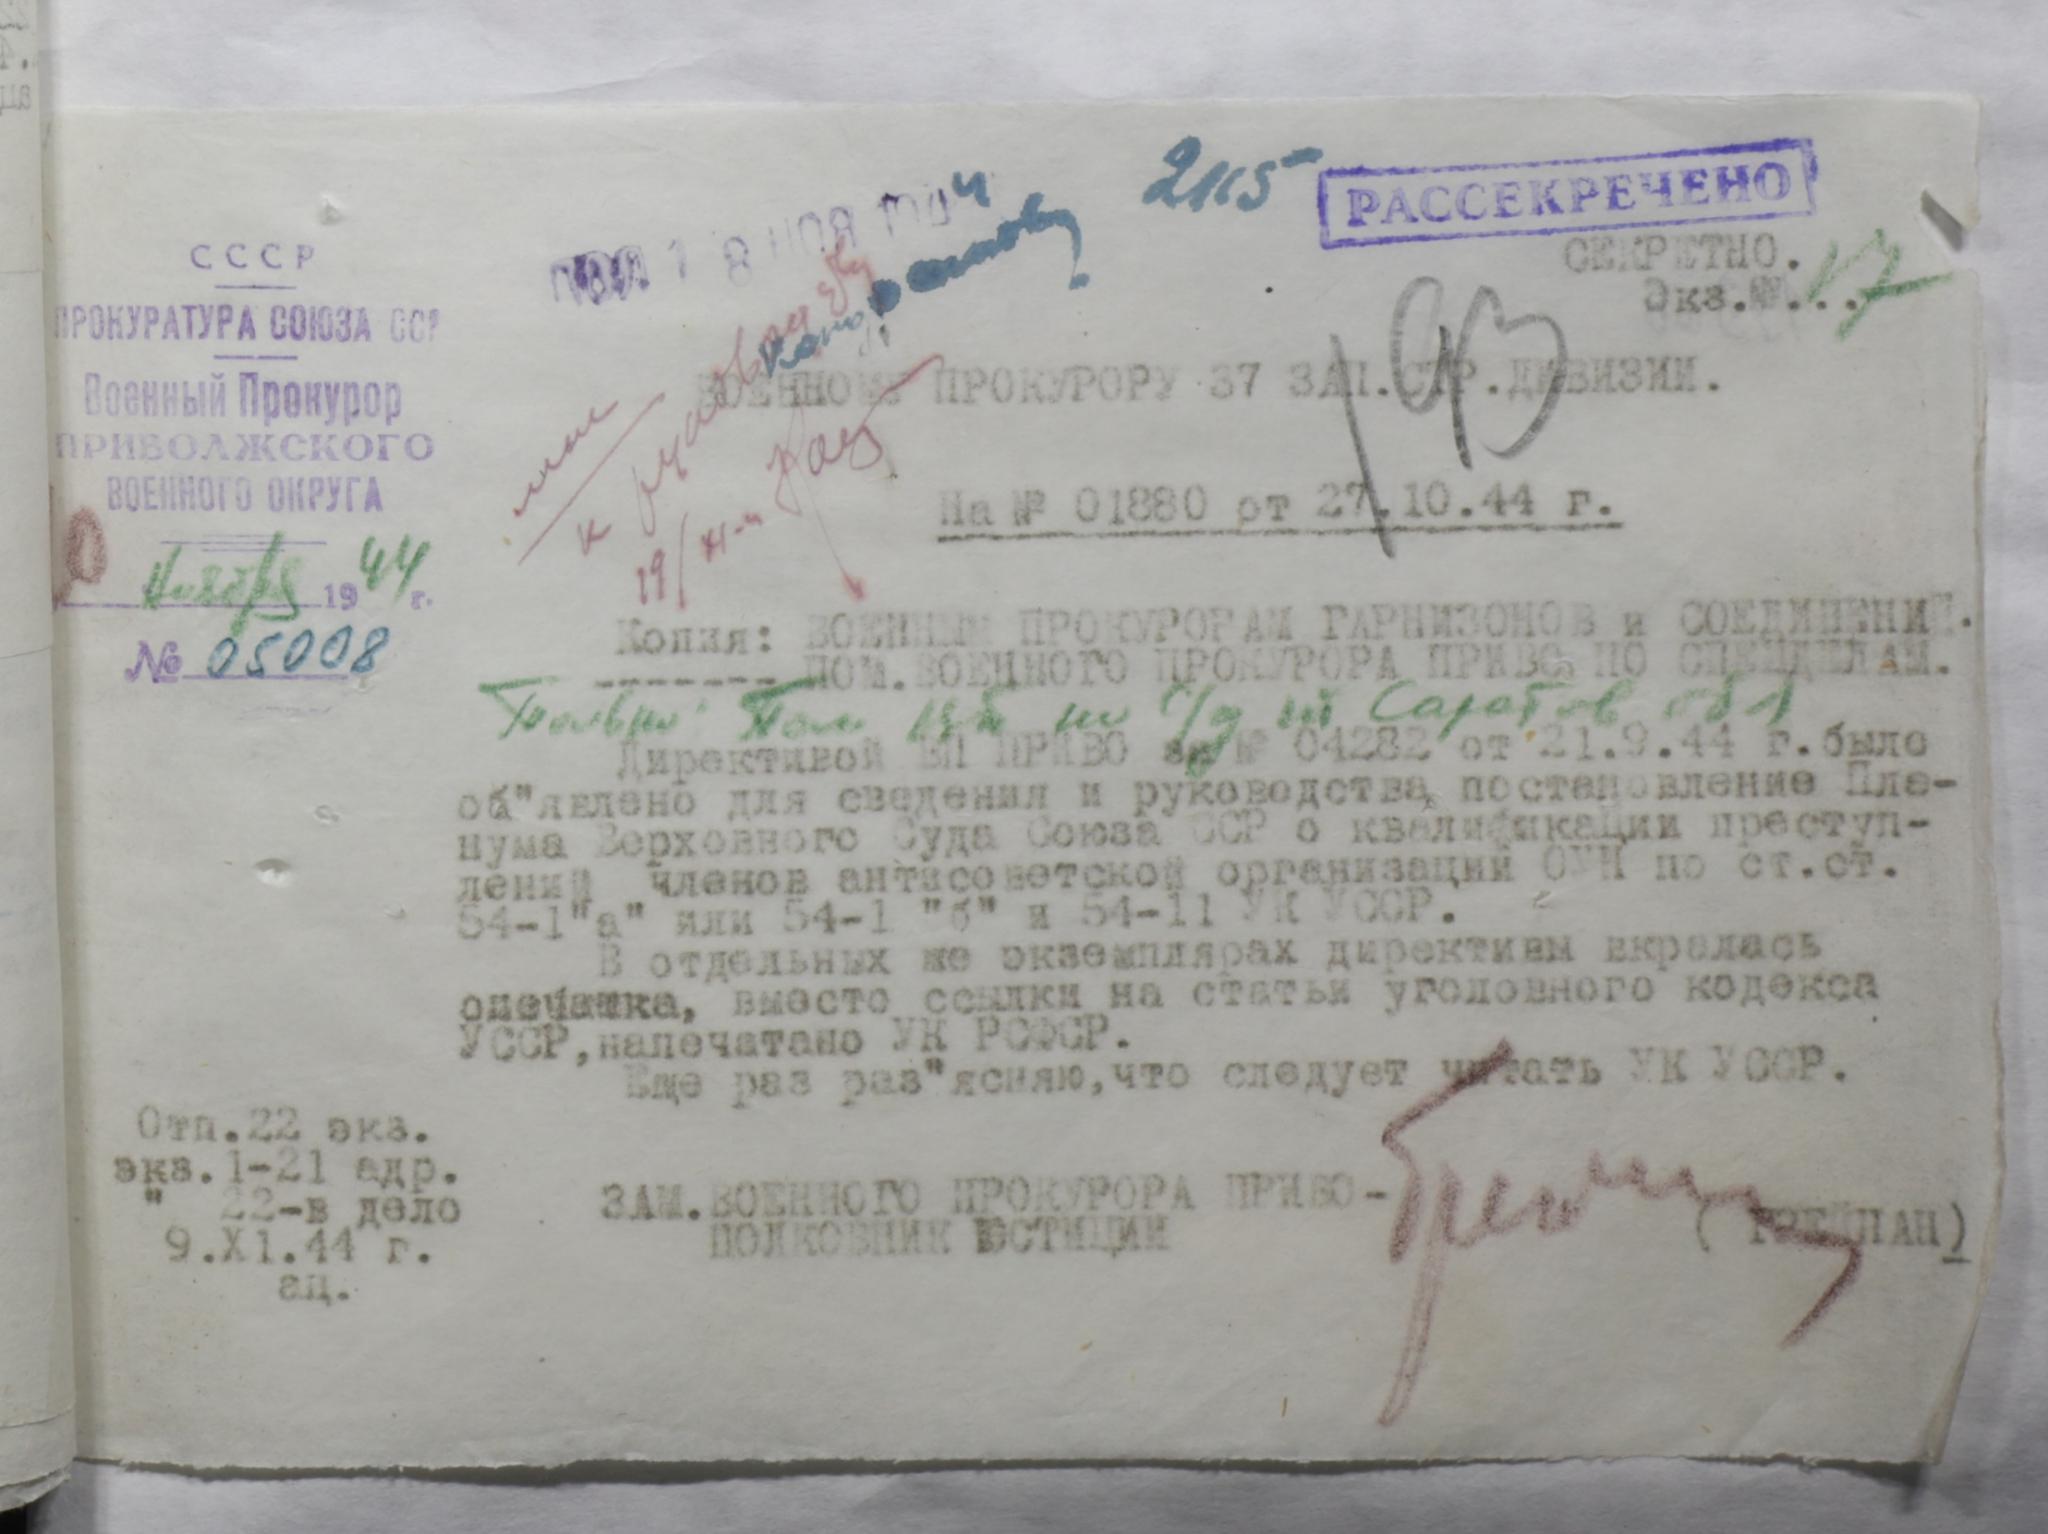 РАССЕКРЕЧЕНО
2115
СЕКРЕТНО.
Экз.№... 17
СССР
ПРОКУРАТУРА СОЮЗА ССР
Военный Прокурор
ПРИВОЛЖСКОГО
ВОЕННОГО ОКРУГА
ноября 1944 г.
№ 05008
193
ВОЕННОМУ ПРОКУРОРУ 37 ЗАП.СТР.ДИВИЗИИ.
На № 01880 от 27.10.44 г.
к
19/XI-4
Копия: ВОЕННЫМ ПРОКУРОРАМ ГАРНИЗОНОВ и СОЕДИНЕНИЙ.
ПОМ.ВОЕННОГО ПРОКУРОРА ПРИВО ПО СПЕЦДЕЛАМ.
Саратов обл
Директивой ВП ПРИВО за № 04282 от 21.9.44 г.было
об"явлено для сведения и руководства, постановление Пле-
нума Верховного Суда Союза ССР о квалификации преступ-
лений членов антисоветской организаций ОУН по ст.ст.
54-1"а" или 54-1 "б" и 54-11 УК УССР.
В отдельных же экземплярах директивы вкралась
опечатка, вместо ссылки на статьи уголовного кодекса
УССР,напечатано УК РСФСР.
Еще раз раз"ясняю,что следует читать УК УССР.
Отп.22 экз.
экз.1-21 адр.
" 22-в дело
9.X1.44 г.
ац.
ЗАМ.ВОЕННОГО ПРОКУРОРА ПРИВО-
ПОЛКОВНИК ЮСТИЦИИ